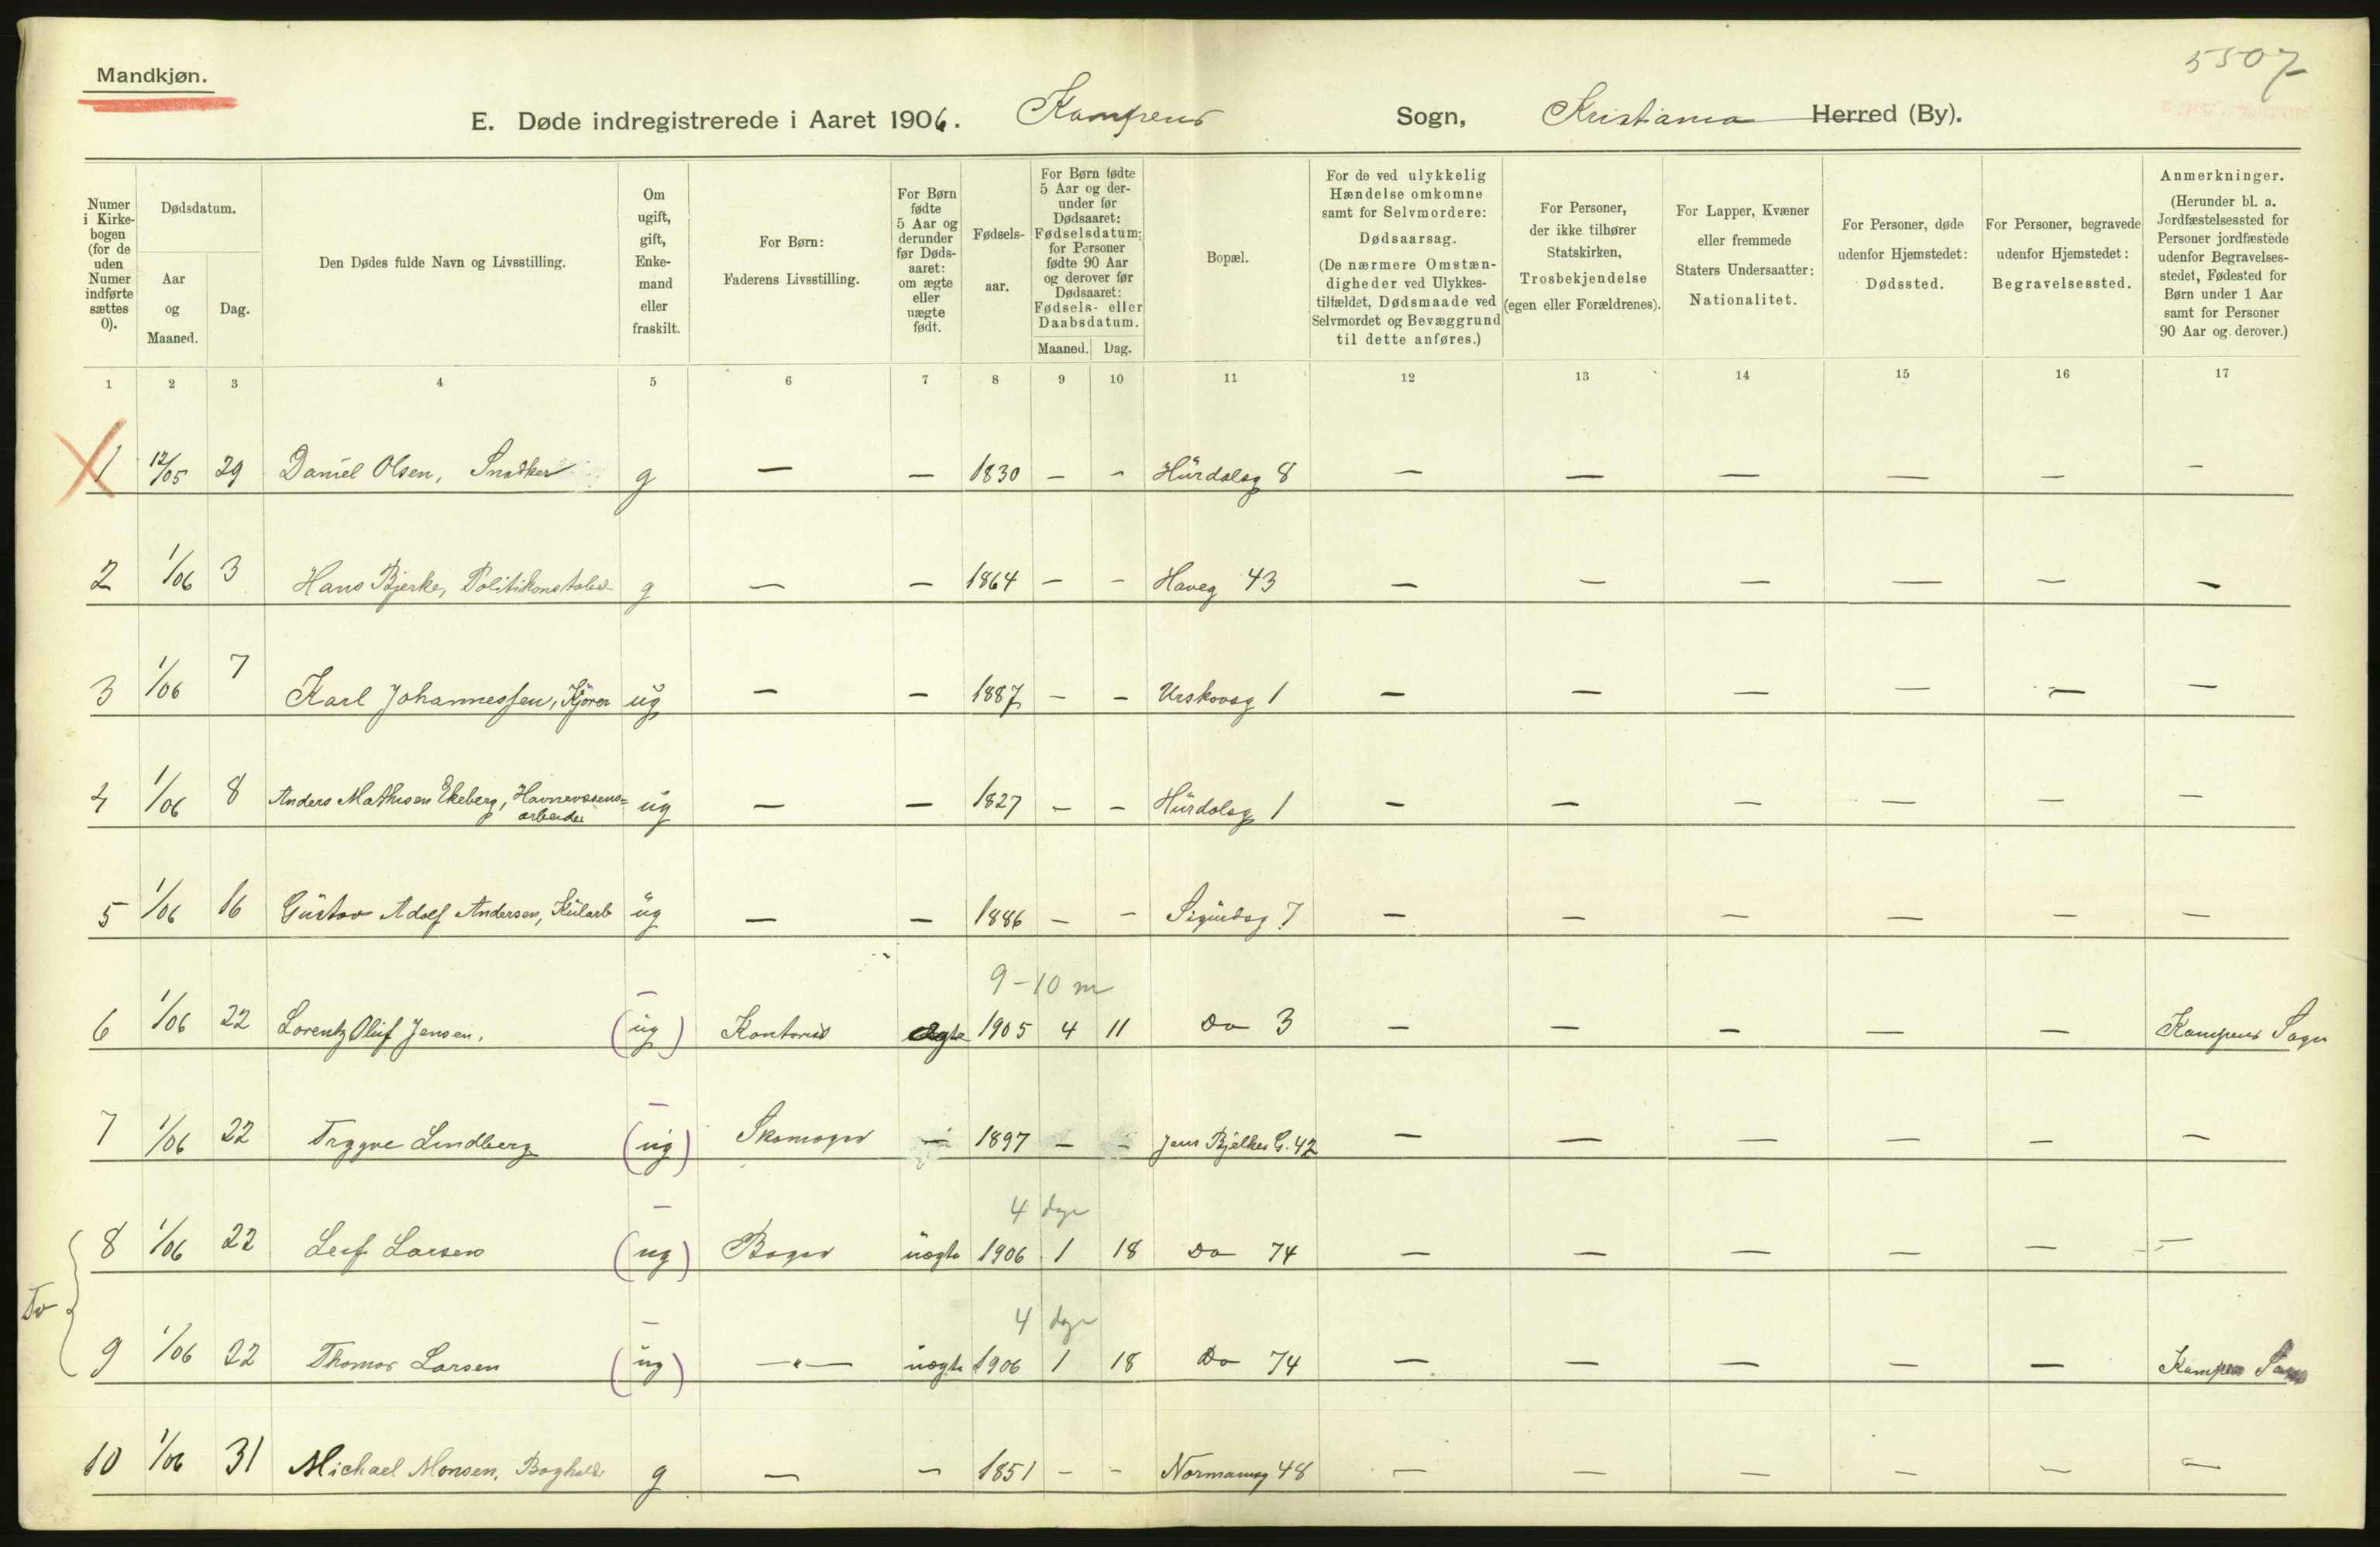 Mandkjøn.
5507
E. Døde indregistrerede i Aaret 1906. Kampens Sogn, Kristiania Herred (By).
Numer i Kirkebogen (for de uden Numer indførte sættes 0).
Dødsdatum.
Aar og Maaned.
Dag.
Den Dødes fulde Navn og Livsstilling.
Om ugift, gift, Enkemand eller fraskilt.
For Børn: Faderens Livsstilling.
For Børn fødte 5 Aar og derunder før Dødsaaret: om ægte eller uægte født.
Fødselsaar.
For Børn fødte 5 Aar og derunder før Dødsaaret: Fødselsdatum; for Personer fødte 90 Aar og derover før Dødsaaret: Fødsels- eller Daabsdatum.
Maaned. Dag.
Bopæl.
For de ved ulykkelig Hændelse omkomne samt for Selvmordere: Dødsaarsag. (De nærmere Omstændigheder ved Ulykkestilfældet, Dødsmaade ved Selvmordet og Bevæggrund til dette anføres.)
For Personer, der ikke tilhører Statskirken, Trosbekjendelse (egen eller Forældrenes).
For Lapper, Kvæner eller fremmede Staters Undersaatter: Nationalitet.
For Personer, døde udenfor Hjemstedet: Dødssted.
For Personer, begravede udenfor Hjemstedet: Begravelsessted.
Anmerkninger. (Herunder bl. a. Jordfæstelsessted for Personer jordfæstede udenfor Begravelsesstedet, Fødested for Børn under 1 Aar samt for Personer 90 Aar og derover.)
1 2 3 4 5 6 7 8 9 10 11 12 13 14 15 16 17
1 12/05 29 Daniel Olsen, Snedker g — — 1830 — — Hurdalsg 8 — — — — — —
2 1/06 3 Hans Bjerke, Politikonstabel g — — 1864 — — Haveg 43 — — — — — —
3 1/06 7 Karl Johannessen, Kjører ug — — 1887 — — Urskovsg 1 — — — — — —
4 1/06 8 Anders Mathisen Ekeberg, Havnevæsens= ug — — 1827 — — Hurdalsg 1 — — — — — —
arbeider
5 1/06 16 Gustav Adolf Andersen, Kularb ug — — 1886 — — Sigurdsg 7 — — — — — —
9-10 m
6 1/06 22 Lorentz Oluf Jensen, (ug) Kontorist ægte 1905 4 11 Do 3 — — — — — Kampens Sogn
7 1/06 22 Trygve Lindberg (ug) Skomager — 1897 — — Jens Bjelkes G. 42 — — — — — —
4 dage
8 1/06 22 Leif Larsen (ug) Bager uægte 1906 1 18 Do 74 — — — — — —
4 dage
9 1/06 22 Thomas Larsen (ug) —"— uægte 1906 1 18 Do 74 — — — — — Kampens Sogn
10 1/06 31 Michael Monsen, Bogholder g — — 1851 — — Normannsg 48 — — — — — —